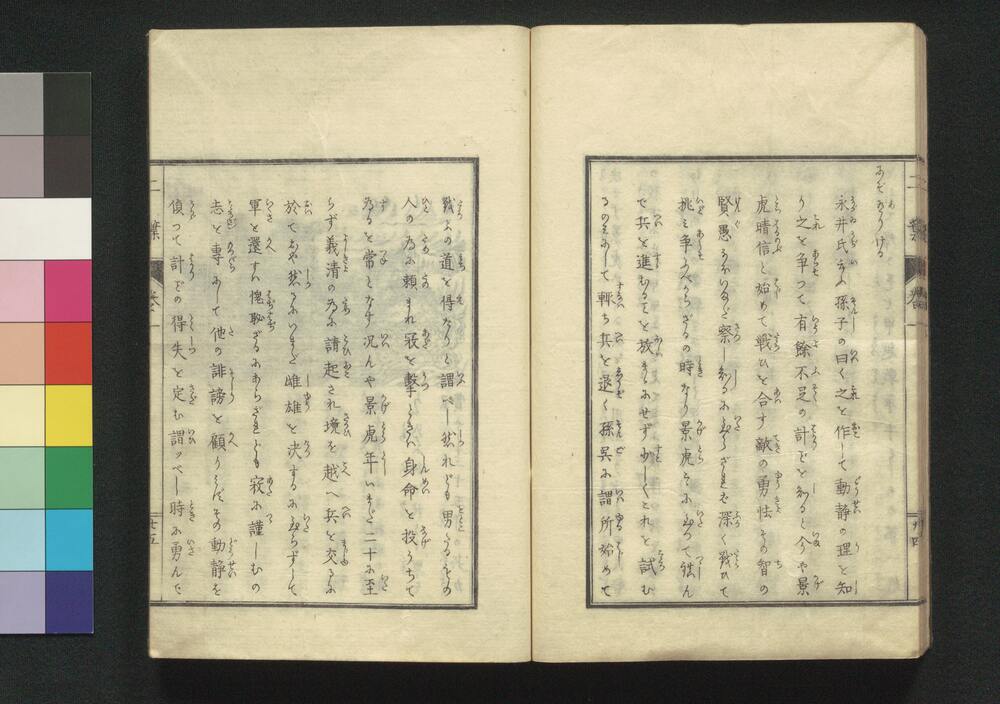 永井氏云ふ孫子の曰く之を作して動静の理を知
り之を争つて有餘不足の計ごとを知ると今や景
虎晴信と始めて戦ひを合す敵の勇怯その智の
賢愚
挑み争ふべからざるの時なり景虎
て兵を進むることを放まにせず少しくこれを試む
るのみにして輙ち兵を退く孫呉に謂所始めて
戦ふの道を得たりと謂べし然れども男たるもの
人の為に頼まれ寇を撃ときは身命を投うちて
為るを常となす况んや景虎年いまだ二十に至
らず義清の為に請起され境を越へ兵を交るに
於てをや然るにいまだ雌雄を決するに至らずして
軍を還すは愧恥ざるにあらざれども寂に謹しむの
志を専にして他の誹謗を顧りみずその動静を
偵つて計ごとの得失を定む謂ッべし時に勇んで